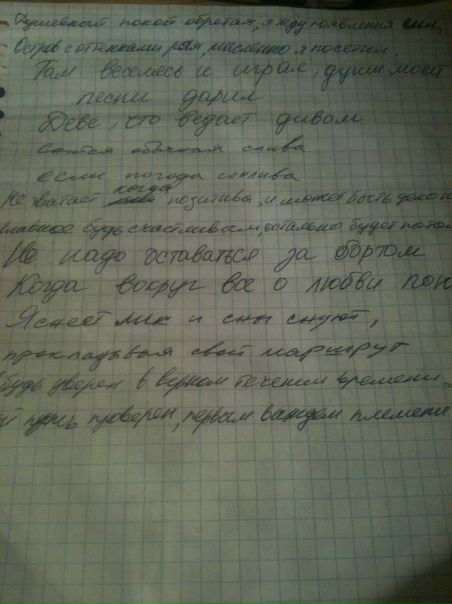 Душевный покой обретая, я жду появления сил,
Остров с оттенками рая, мысленно я посетил.
Там веселясь и играя, души моей
песни дарил
Деве, что ведает дивом
снится обычная слива
если погода сонлива
Не хватает когда позитива, и может быть дело
главное будь счастливым, остально будет
Не надо оставаться за бортом
Когда вокруг все о любви
Яснеет лик и сны снуют,
прокладывая свой маршрут
будь уверен в верном течении времени,
проверен, первым вождем племени